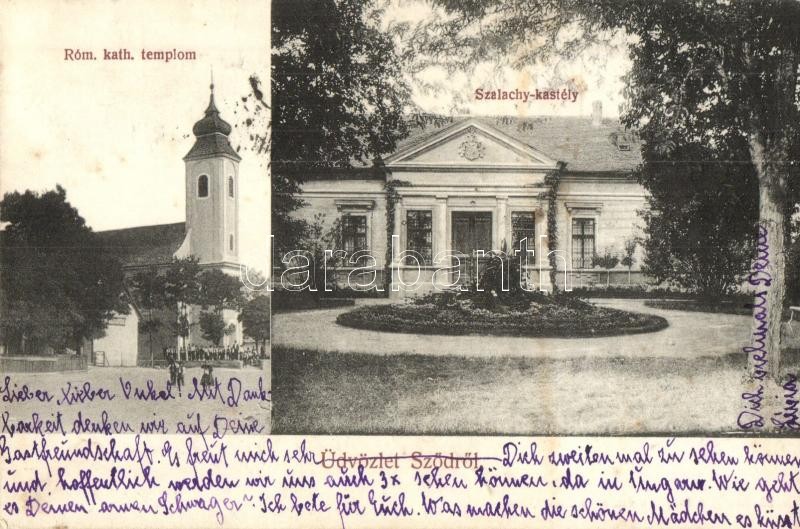 Róm. kath. templom
Szalachy-kastély
darabanth
Lieber, lieber Onkel! Mit Dank-
barkeit denken wir auf Deine
Gastfreundschaft. Es freut mich sehr
Üdvözlet Sződről
Dich zweiten mal zu sehen können
und hoffentlich werden wir uns auch 3x sehen können, da in Ungarn. Wie geht
es Deinen "armen Schwager"? Ich bete für Euch. Was machen die schönen Mädchen es küsst
Dich vielmals Deine